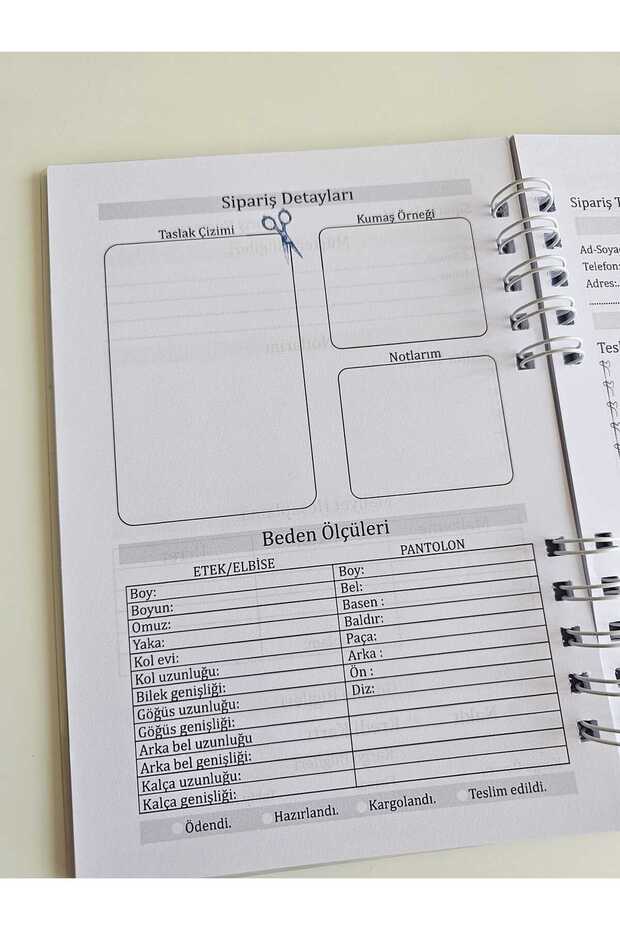 Sipariş Detayları
Taslak Çizimi
Kumaş Örneği
Notlarım
Beden Ölçüleri
ETEK/ELBİSE
Boy:
Boyun:
Omuz:
Yaka:
Kol evi:
Kol uzunluğu:
Bilek genişliği:
Göğüs uzunluğu:
Göğüs genişliği:
Arka bel uzunluğu
Arka bel genişliği:
Kalça uzunluğu:
Kalça genişliği:
PANTOLON
Boy:
Bel:
Basen :
Baldır:
Paça:
Arka :
Ön :
Diz:
Ödendi.
Hazırlandı.
Kargolandı.
Teslim edildi.
Sipariş T
Ad-Soya
Telefon:
Adres:..
Tes